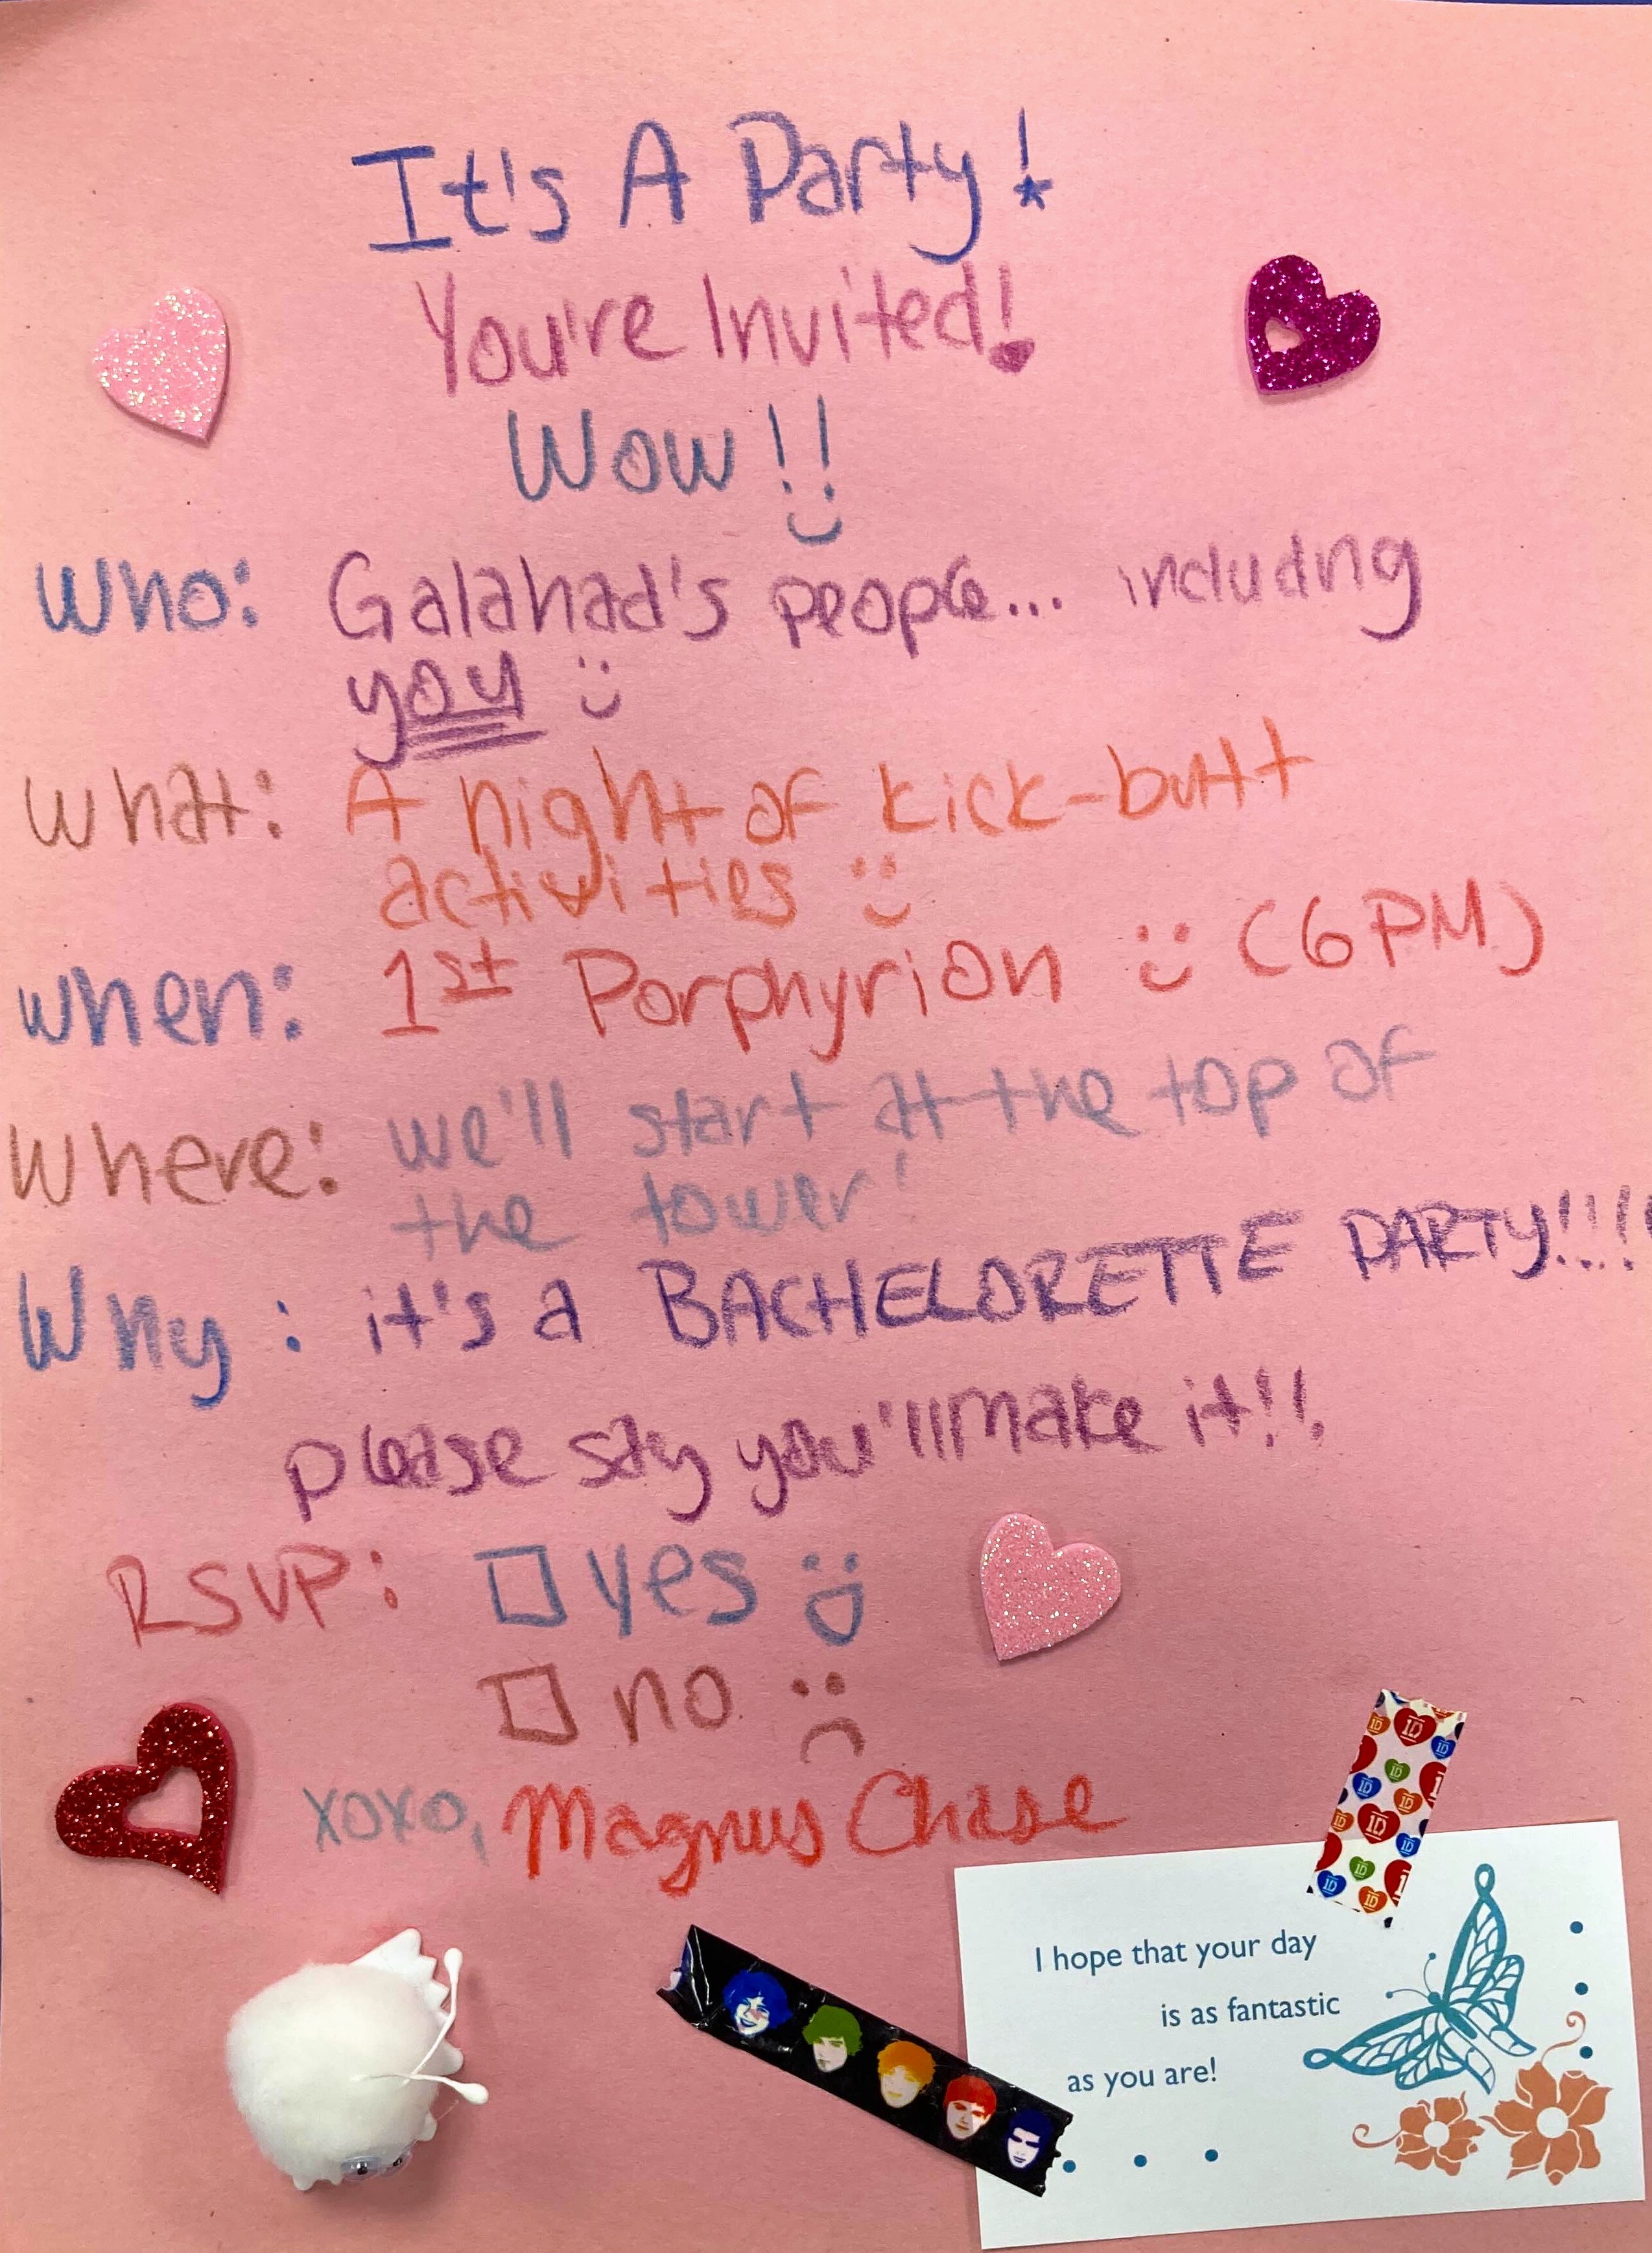 It's A Party!
You're Invited!
Wow!!
Who: Galahad's people... including
you :)
What: A night of kick-butt
activities :)
When: 1st Porphyrion :) (6PM)
Where: we'll start at the top of
the tower!
Why: it's a BACHELORETTE PARTY!!!!
please say you'll make it!!
RSVP: ☐ yes :D
☐ no :(
xoxo, Magnus Chase
1D
I hope that your day
is as fantastic
as you are!